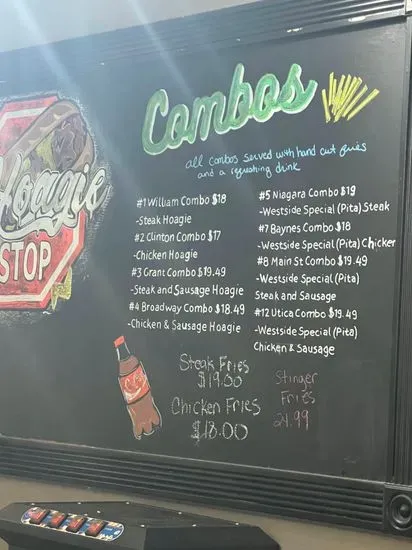 Hoagie
STOP
Combos
all combos served with hand cut fries
and a refreshing drink
#1 William Combo $18
-Steak Hoagie
#2 Clinton Combo $17
-Chicken Hoagie
#3 Grant Combo $19.49
-Steak and Sausage Hoagie
#4 Broadway Combo $18.49
-Chicken & Sausage Hoagie
#5 Niagara Combo $19
-Westside Special (Pita) Steak
#7 Baynes Combo $18
-Westside Special (Pita) Chicken
#8 Main St Combo $19.49
-Westside Special (Pita)
Steak and Sausage
#12 Utica Combo $19.49
-Westside Special (Pita)
Chicken & Sausage
Steak Fries
$19.00
Chicken Fries
$18.00
Stinger
Fries
21.99